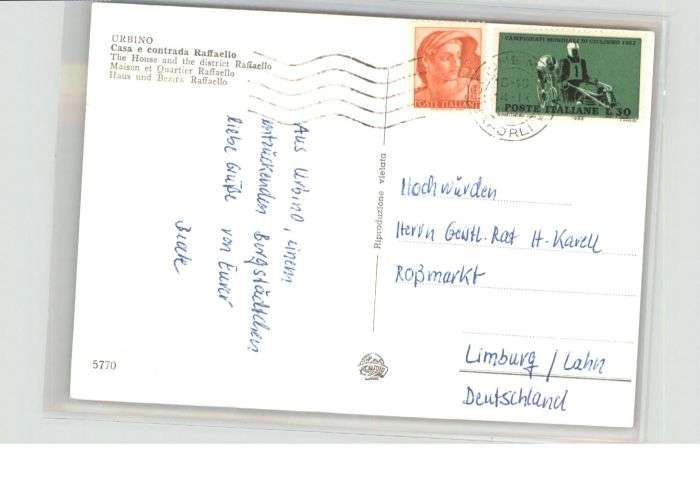 URBINO
Casa e contrada Raffaello
The House and the district Raffaello
Maison et Quartier Raffaello
Haus und Bezirk Raffaello
Aus Urbino, einem
entzückenden Bergstädtchen
liebe Grüße von Eurer
Beate
5770
Riproduzione vietata
POSTE ITALIANE
CAMPIONATI MONDIALI DI CICLISMO 1962
1
POSTE ITALIANE L.30
FORLI
Hochwürden
Herrn Geistl. Rat H. Karell
Roßmarkt
Limburg / Lahn
Deutschland